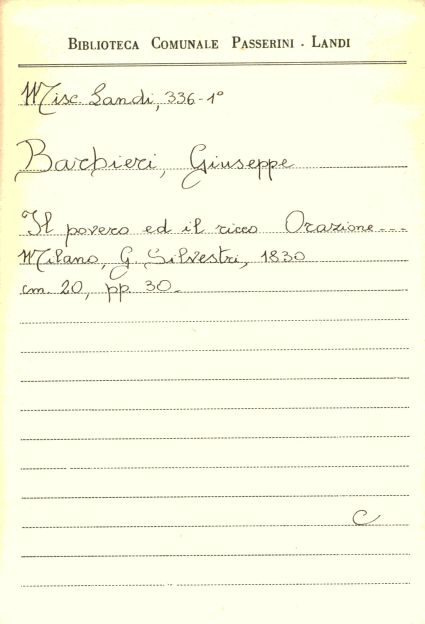 BIBLIOTECA COMUNALE PASSERINI - LANDI
Misc. Landi, 336-1°
Barbieri, Giuseppe
Il povero ed il ricco Orazione ---
Milano, G. Silvestri, 1830
cm. 20, pp. 30.
C